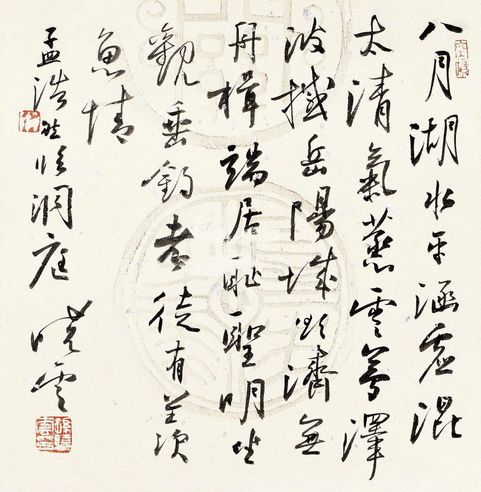 八月湖水平涵虚混
太清氣蒸雲夢澤
波撼岳陽城欲濟無
舟楫端居耻聖明坐
觀垂釣者徒有羡
魚情
孟浩然临洞庭 晓雲